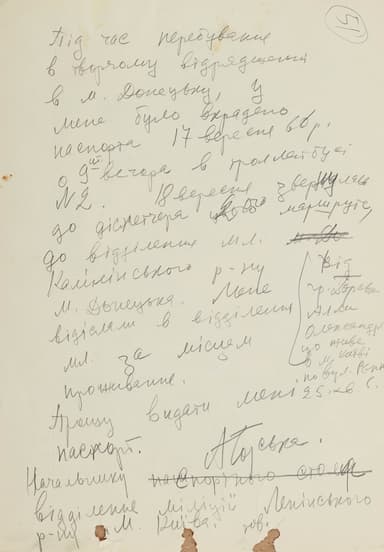 51
Під час перебування
в творчому відрядженні
в м. Донецьку, у
мене було вкрадено
паспорта 17 вересня 60 р.
о 9ій вечора в троллейбусі
№2. 18 вересня звернулась
до діспетчера маршруту,
до відділення міл.
Калінінського р-ну
м. Донецька. Мене
відіслали в відділення
міл. за місцем
проживання.
Прошу видати мені
паспорт.
А Горська.
від
гр.
Алли
Олександр
що живе
в м. Києві
по вул. Репіна
25. кв. 6.
Начальнику паспортного стола
відділення міліції Ленінського
р-ну м. Києва. тов.